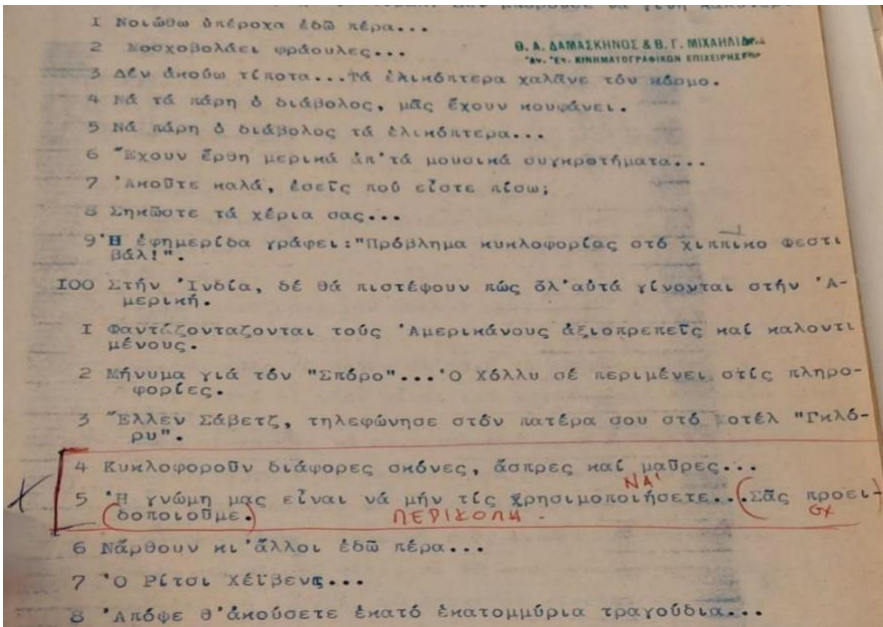 I Νοιώθω ὑπέροχα ἐδῶ πέρα...
2 Μοσχοβολάει φράουλες...
Θ. Α. ΔΑΜΑΣΚΗΝΟΣ & Β. Γ. ΜΙΧΑΗΛΙΔΗΣ
"Αν. Ἑτ. ΚΙΝΗΜΑΤΟΓΡΑΦΙΚΩΝ ΕΠΙΧΕΙΡΗΣΕΩΝ
3 Δέν ἀκούω τίποτα...Τά ἑλικόπτερα χαλᾶνε τόν κόσμο.
4 Νά τά πάρη ὁ διάβολος, μᾶς ἔχουν κουφάνει.
5 Νά πάρη ὁ διάβολος τά ἑλικόπτερα...
6 Ἔχουν ἔρθη μερικά ἀπ'τά μουσικά συγκροτήματα...
7 Ἀκοῦτε καλά, ἐσεῖς πού εἶστε πίσω;
8 Σηκῶστε τά χέρια σας...
9 Ἡ ἐφημερίδα γράφει:"Πρόβλημα κυκλοφορίας στό χιππικο Φεστι
βάλ!".
I00 Στήν Ἰνδία, δέ θά πιστέψουν πώς ὅλ'αὐτά γίνονται στήν Ἀ-
μερική.
I Φαντάζονταζονται τούς Ἀμερικάνους ἀξιοπρεπεῖς καί καλοντι
μένους.
2 Μήνυμα γιά τόν "Σπόρο"...Ὁ Χόλλυ σέ περιμένει στίς πληρο-
φορίες.
3 Ἔλλεν Σάβετζ, τηλεφώνησε στόν πατέρα σου στό Μοτέλ "Γκλό-
ρυ".
4 Κυκλοφοροῦν διάφορες σκόνες, ἄσπρες καί μαῦρες...
ΝΑ'
5 Ἡ γνώμη μας εἶναι νά μήν τίς χρησιμοποιήσετε...(Σᾶς προει-
(δοποιοῦμε.) ΠΕΡΙΚΟΠΗ -
6 Νἄρθουν κι'ἄλλοι ἐδῶ πέρα...
7 Ὁ Ρίτσι Χέϊβενς...
8 Ἀπόψε θ'ἀκούσετε ἑκατό ἑκατομμύρια τραγούδια...